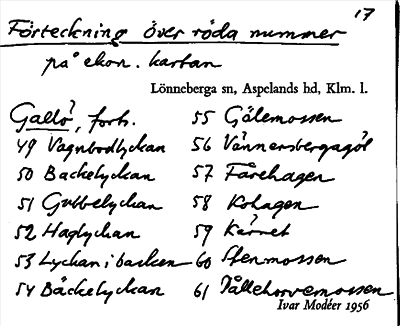 17
Förteckning över röda nummer
på ekon. kartan
Lönneberga sn, Aspelands hd, Klm. l.
Gallö, forts.
49 Vagnbodlyckan
50 Backelyckan
51 Gubbelyckan
52 Haglyckan
53 Lyckan i backen
54 Bäckelyckan
55 Gölemossen
56 Vännersbergagöl
57 Fårehagen
58 Kohagen
59 Kärret
60 Stenmossen
61 Pållehorvemossen
Ivar Modéer 1956